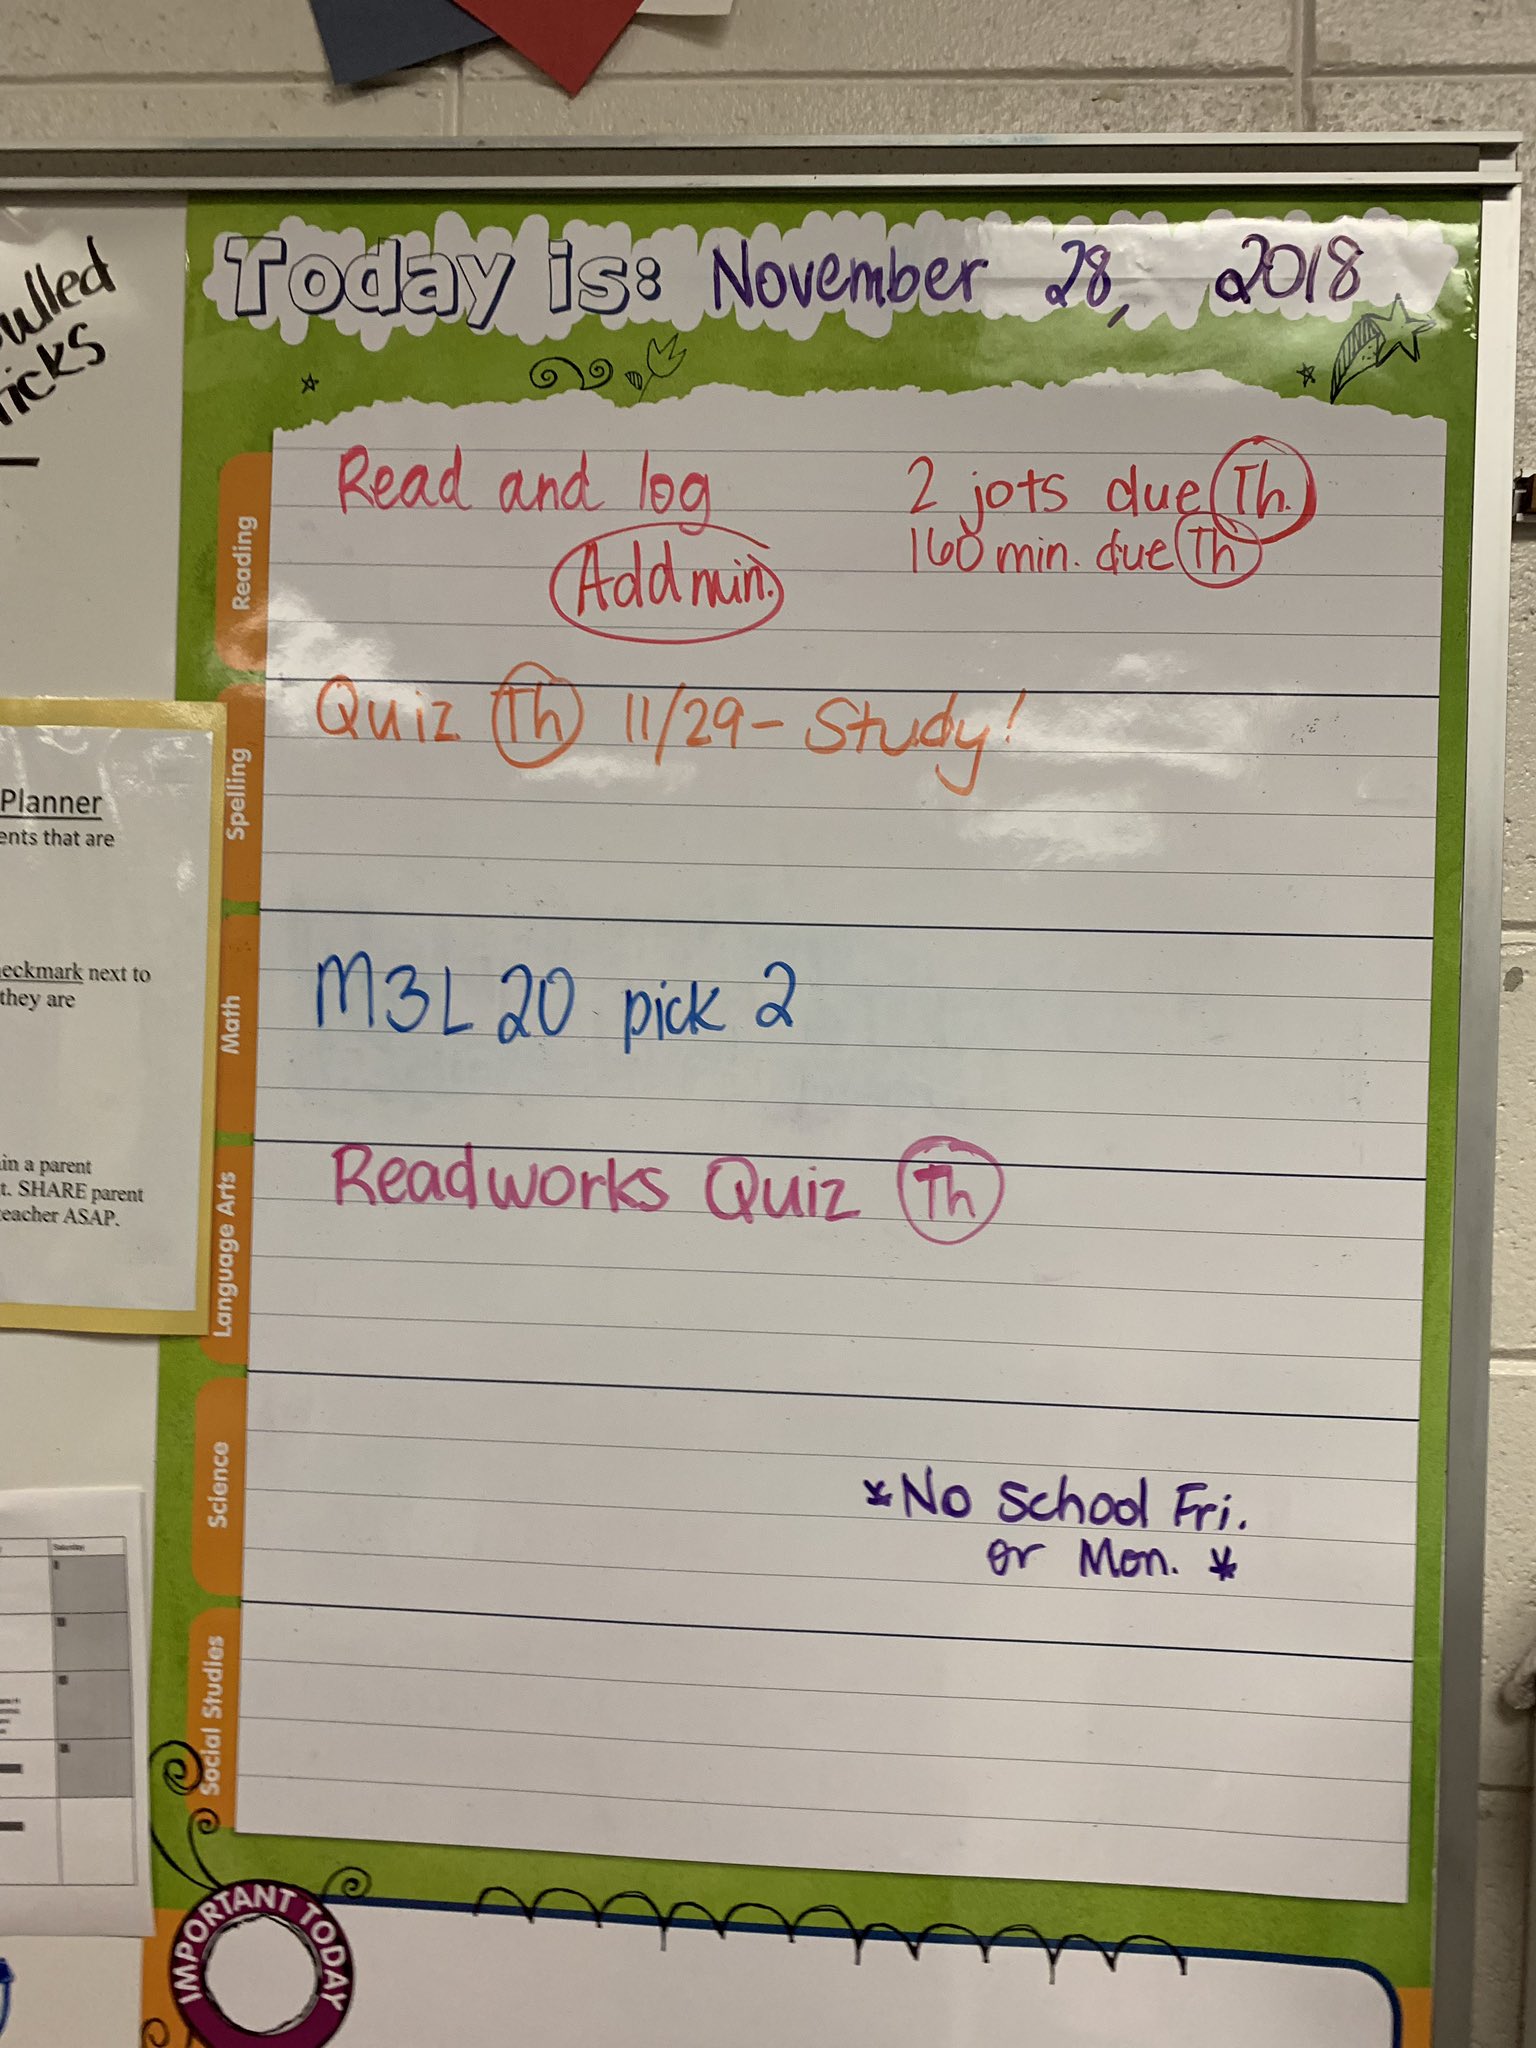 Today is: November 28, 2018
ulled
icks
Reading
Read and log
2 jots due Th.
160 min. due Th
Add min.
Spelling
Quiz Th 11/29 - Study!
Planner
ents that are
eckmark next to
they are
Math
M3L 20 pick 2
in a parent
t. SHARE parent
eacher ASAP.
Language Arts
Readworks Quiz Th
Science
*No School Fri.
or Mon. *
Saturday
Social Studies
IMPORTANT TODAY